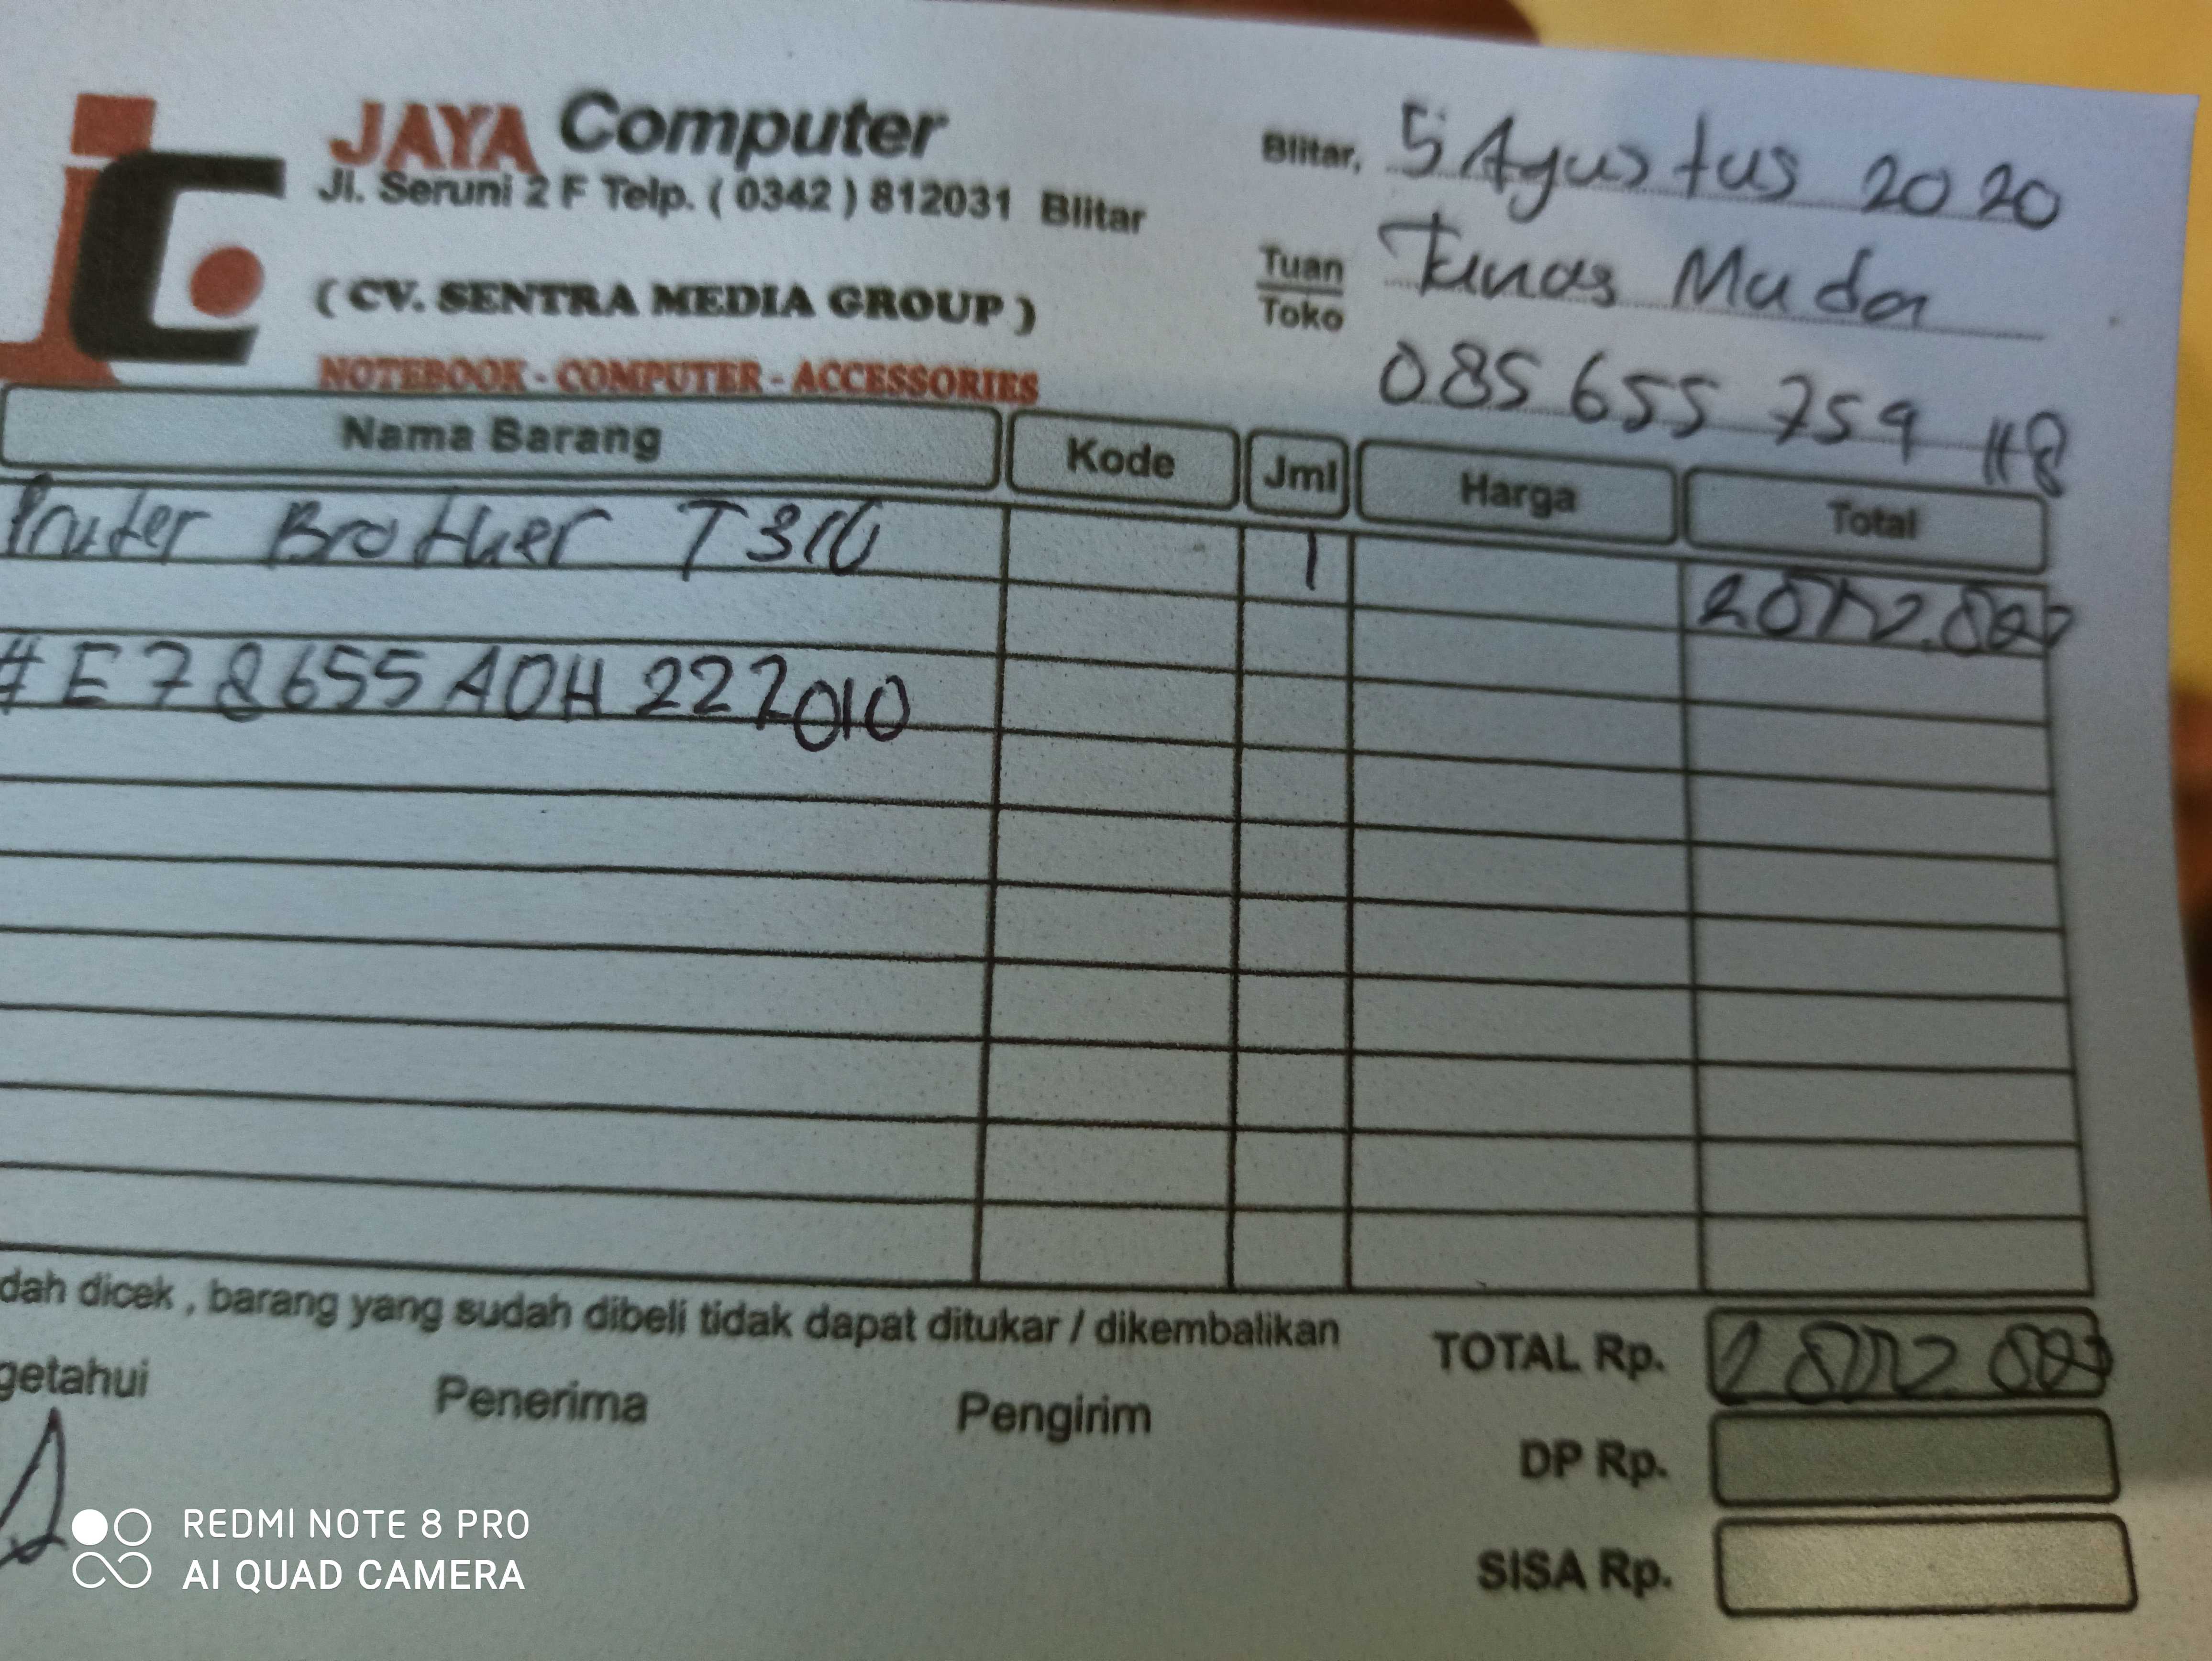 JAYA Computer
Jl. Seruni 2 F Telp. ( 0342 ) 812031 Blitar
( CV. SENTRA MEDIA GROUP )
NOTEBOOK - COMPUTER - ACCESSORIES
Blitar, 5 Agustus 2020
Tuan
Toko
Tunas Muda
085 655 759 118
Nama Barang Kode Jml Harga Total
Printer Brother T310 1
#E78655A0H222010
dah dicek , barang yang sudah dibeli tidak dapat ditukar / dikembalikan
getahui Penerima Pengirim
TOTAL Rp.
DP Rp.
SISA Rp.
REDMI NOTE 8 PRO
AI QUAD CAMERA